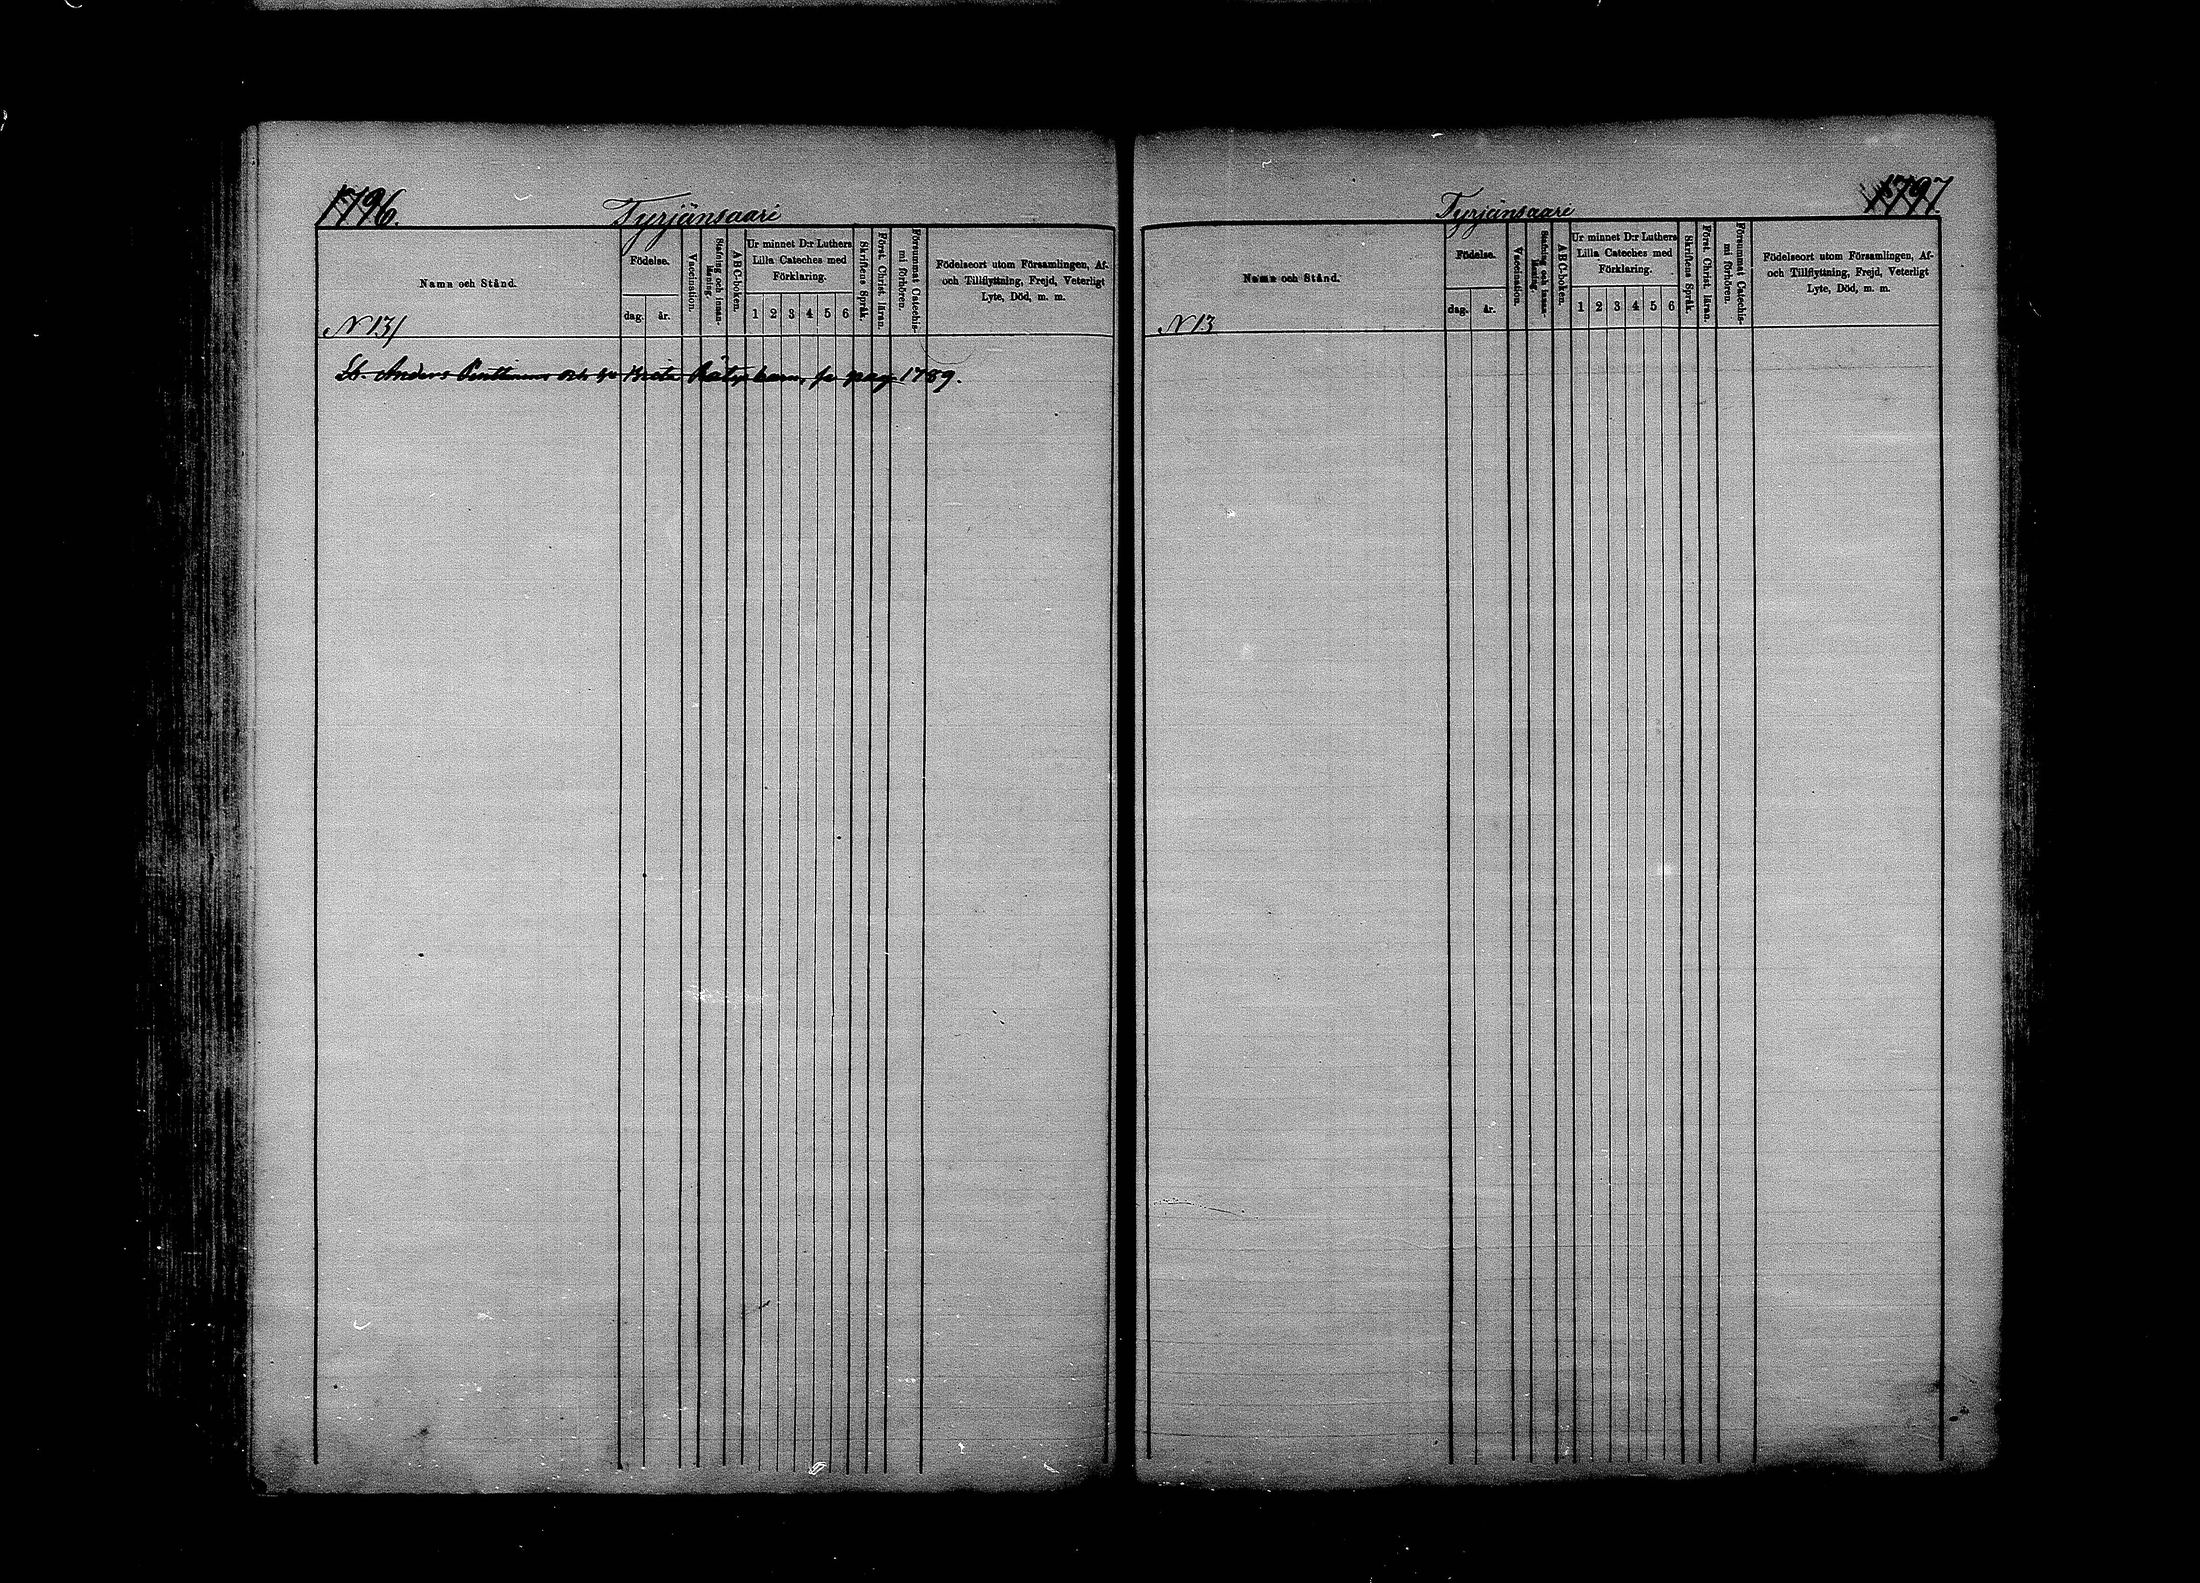 1796.
Tyrjänsaari
Namn och Stånd.
Födelse.
dag.
år.
Vaccination.
Stafning och innan-
läsning.
ABC-boken.
Ur minnet D:r Luthers
Lilla Cateches med
Förklaring.
1 2 3 4 5 6
Skriftens Språk.
Först. Christ. läran.
Försummat Catechis-
mi förhören.
Födelseort utom Församlingen, Af-
och Tillflyttning, Frejd, Veterligt
Lyte, Död, m. m.
N 13/
Anders Penttinens och Kaisa barn, pag 1789.
Tyrjänsaari
1797.
Namn och Stånd.
Födelse.
dag.
år.
Vaccination.
Stafning och innan-
läsning.
ABC-boken.
Ur minnet D:r Luthers
Lilla Cateches med
Förklaring.
1 2 3 4 5 6
Skriftens Språk.
Först. Christ. läran.
Försummat Catechis-
mi förhören.
Födelseort utom Församlingen, Af-
och Tillflyttning, Frejd, Veterligt
Lyte, Död, m. m.
N 13